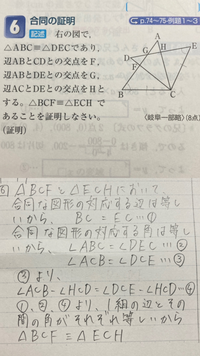 6 合同の証明
p.74〜75・例題1〜3
記述 右の図で,
△ABC≡△DECであり,
辺ABとCDとの交点をF,
辺ABとDEとの交点をG,
辺ACとDEとの交点をHと
する。△BCF≡△ECHで
あることを証明しなさい。
〈岐阜一部略〉(8点)
(証明)
A
E
G
H
D
F
B
C
△BCFと△ECHにおいて、
合同な図形の対応する辺は等し
いから、BC=EC…①
合同な図形の対応する角は等し
いから、∠ABC=∠DEC…②
∠ACB=∠DCE…③
③より、
∠ACB-∠HCD=∠DCE-∠HCD…④
①、②、④より、1組の辺とその
間の角がそれぞれ等しいから
△BCF≡△ECH